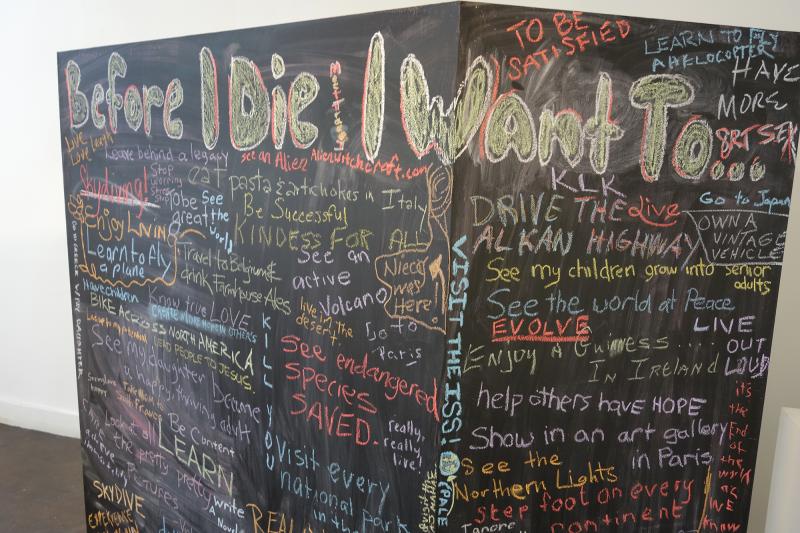 Before I Die, I Want To...
TO BE
SATISFIED
LEARN TO FLY
A HELOCOPTER
HAVE
MORE
Live
Love laugh
Leave behind a legacy
see an Alien Alienwitchcraft.com
Skydiving!
Stop
worrying
eat
pasta & artichokes in Italy
To be
great
See
the
world
Be Successful
KINDESS FOR ALL
Enjoy LIVING
Learn to fly
a plane
Travel to Belgium &
drink Farmhouse Ales
See an
active
Volcano
Niece
was
Here!
Have children
Know true LOVE
BIKE ACROSS NORTH AMERICA
LEAD PEOPLE TO JESUS.
live in the
desert.
Go to
Paris
KILL YOU
See my daughter become
a happy thriving adult
See endangered
species
SAVED.
really,
really,
live!
Be Content
LEARN
the pretty pretty
PICTURES
write
a
Novel
Visit every
national Park
in the
SKYDIVE
EXPERIENCE
VISIT THE ISS!
(PALE
KLK
DRIVE THE
ALKAN HIGHWAY
Live
Go to Japan
OWN A
VINTAGE
VEHICLE
See my children grow into senior
adults
See the world at Peace
EVOLVE
LIVE
OUT
LOUD
Enjoy a Guinness....
In Ireland
help others have HOPE
Show in an art gallery
in Paris
it's
the
End
of
the
world
as
WE
know
See the
Northern Lights
step foot on every
continent
Ignore